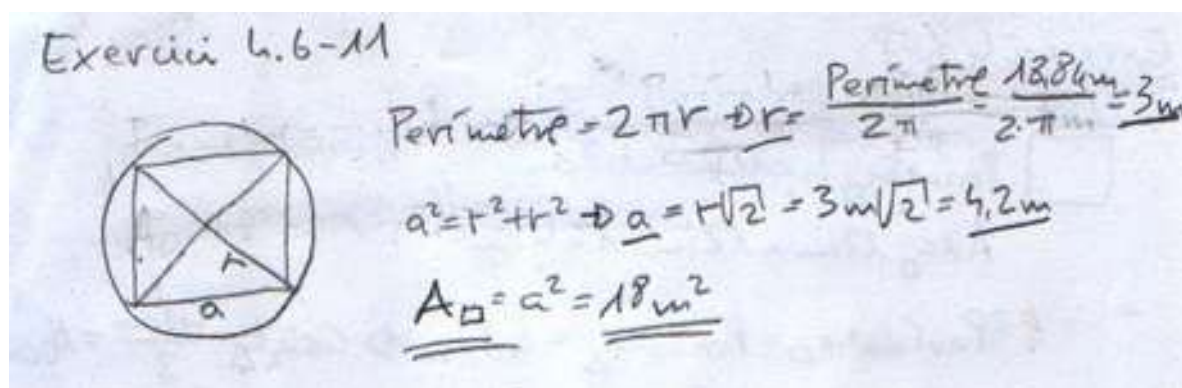 Exercici 4.6-11
Perímetre = 2πr ⇒ r = Perimetre/2π = 18,84m/2·π = 3m
a²=r²+r² ⇒ a = r√2 = 3m√2 = 4,2m
A□ = a² = 18m²
r
a